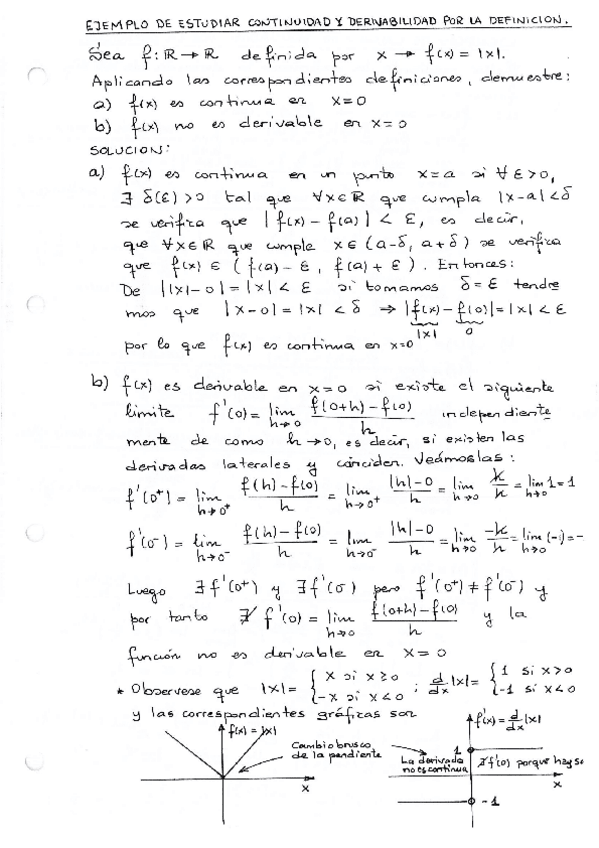 EJEMPLO DE ESTUDIAR CONTINUIDAD Y DERIVABILIDAD POR LA DEFINICION.
Sea f: ℝ → ℝ definida por x → f(x) = |x|.
Aplicando las correspondientes definiciones, demuestre:
a) f(x) es continua en x=0
b) f(x) no es derivable en x=0
SOLUCION:
a) f(x) es continua en un punto x=a si ∀ε>0,
∃ δ(ε)>0 tal que ∀x∈ℝ que cumpla |x-a|<δ
se verifica que |f(x)-f(a)| < ε, es decir,
que ∀x∈ℝ que cumple x∈(a-δ, a+δ) se verifica
que f(x) ∈ (f(a)-ε, f(a)+ε). Entonces:
De ||x|-0| = |x| < ε si tomamos δ=ε tendre
mos que |x-0| = |x| < δ ⇒ |f(x)-f(0)| = |x| < ε
|x| 0
por lo que f(x) es continua en x=0
b) f(x) es derivable en x=0 si existe el siguiente
limite f'(0) = lim h→0 (f(0+h)-f(0))/h independiente
mente de como h→0, es decir, si existen las
derivadas laterales y coinciden. Veámoslas:
f'(0⁺) = lim h→0⁺ (f(h)-f(0))/h = lim h→0⁺ (|h|-0)/h = lim h→0 h/h = lim h→0 1 = 1
f'(0⁻) = lim h→0⁻ (f(h)-f(0))/h = lim h→0⁻ (|h|-0)/h = lim h→0 -h/h = lim h→0 (-1) = -
Luego ∃ f'(0⁺) y ∃ f'(0⁻) pero f'(0⁺) ≠ f'(0⁻) y
por tanto ∄ f'(0) = lim h→0 (f(0+h)-f(0))/h y la
función no es derivable en x=0
* Observese que |x| = { x si x≥0 -x si x<0 ; d/dx |x| = { 1 si x>0 -1 si x<0
y las correspondientes gráficas son
f(x) = |x|
x
Cambio brusco
de la pendiente
La derivada
no es continua
f'(x) = d/dx |x|
1
∄ f'(0) porque hay
x
-1